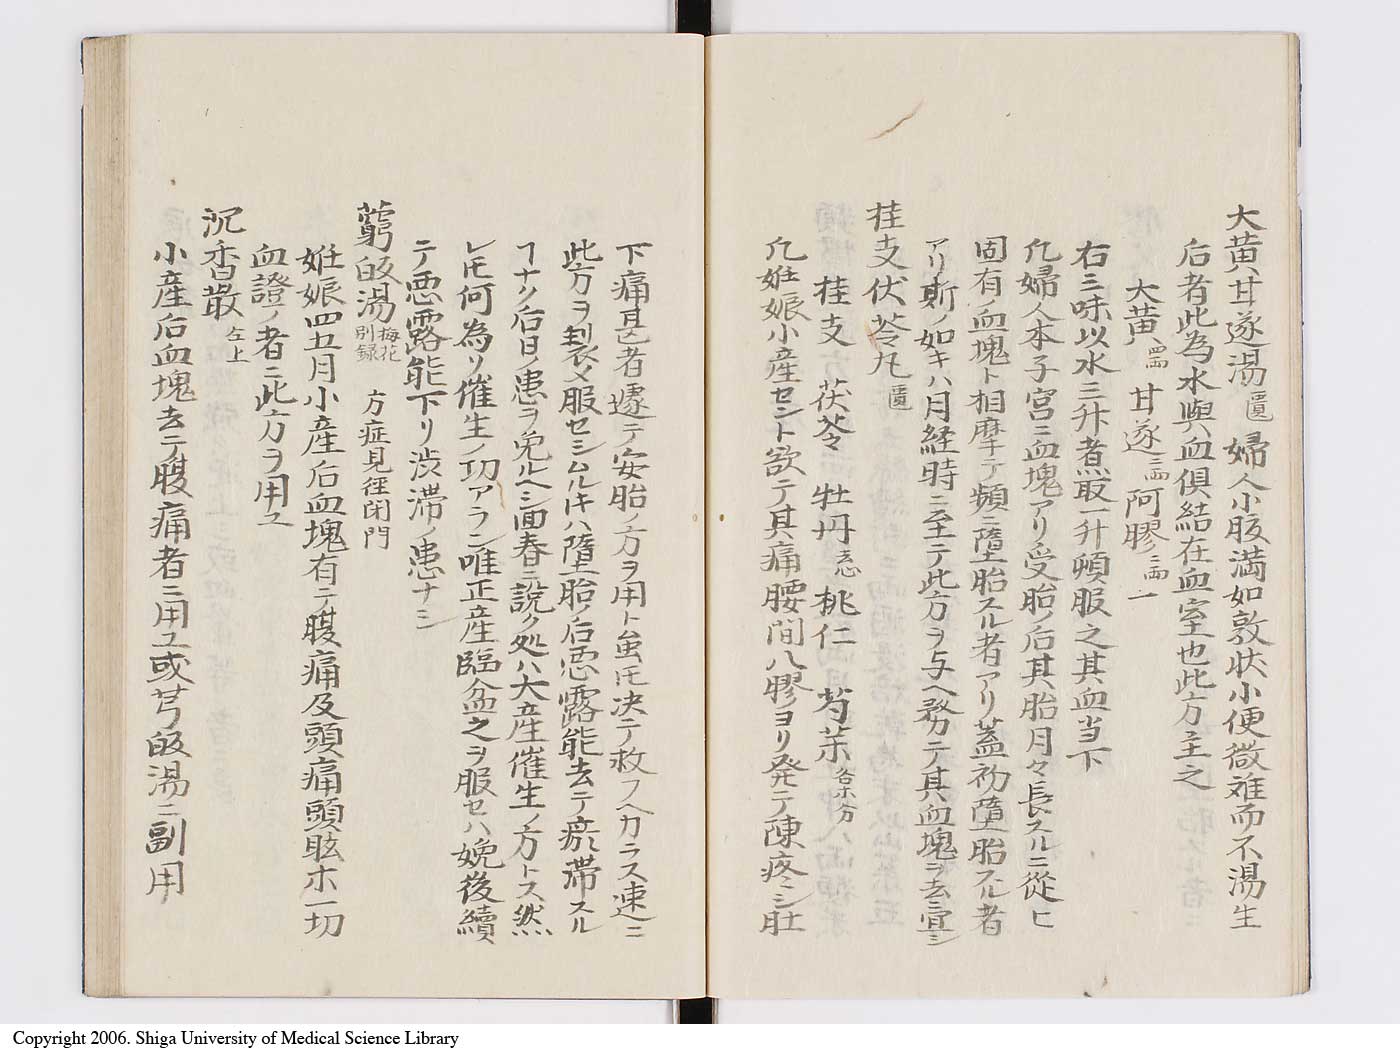 大黄甘遂湯 匱 婦人小腹満如敦状小便微难而不渇生
后者此為水與血倶結在血室也此方主之
大黄四両 甘遂二両 阿膠二両 一
右三味以水三升煮取一升頓服之其血当下
凡婦人本子宮ニ血塊アリ受胎ノ后其胎月々長スルニ従ヒ
固有ノ血塊ト相摩テ頻ニ堕胎スル者アリ蓋初堕胎スル者
アリ斯ノ如キハ月経時ニ至テ此方ヲ与ヘ務テ其血塊ヲ去ニ宜シ
桂支伏苓丸 匱
桂支 茯苓 牡丹去心 桃仁 芍薬各等分
凡姙娠小産セント欲テ其痛腰間八膠ヨリ発テ陳疼シ肚
下痛甚者遽テ安胎ノ方ヲ用ト虽𪜈决テ救フヘカラス速ニ
此方ヲ製メ服セシムルキハ堕胎ノ后悪露能去テ瘀滞スル
ヿナク后日ノ患ヲ免ルヘシ回春ニ説ク処ハ大産催生ノ方トス然
レ𪜈何為ソ催生ノ功アラン唯正産臨盆之ヲ服セハ娩後續
テ悪露能下リ渋滞ノ患ナシ
藭皈湯 梅花別録 方症見徑閉門
姙娠四五月小産后血塊有テ腹痛及頭痛頭眩ホ一切
血證ノ者ニ此方ヲ用ユ
沉香散 仝上
小産后血塊去テ腹痛者ニ用ユ或芎皈湯ニ副用
Copyright 2006. Shiga University of Medical Science Library